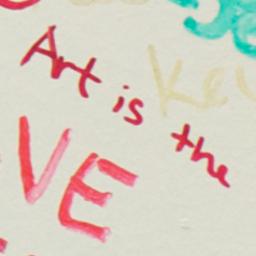 Art is the
Ke
VE